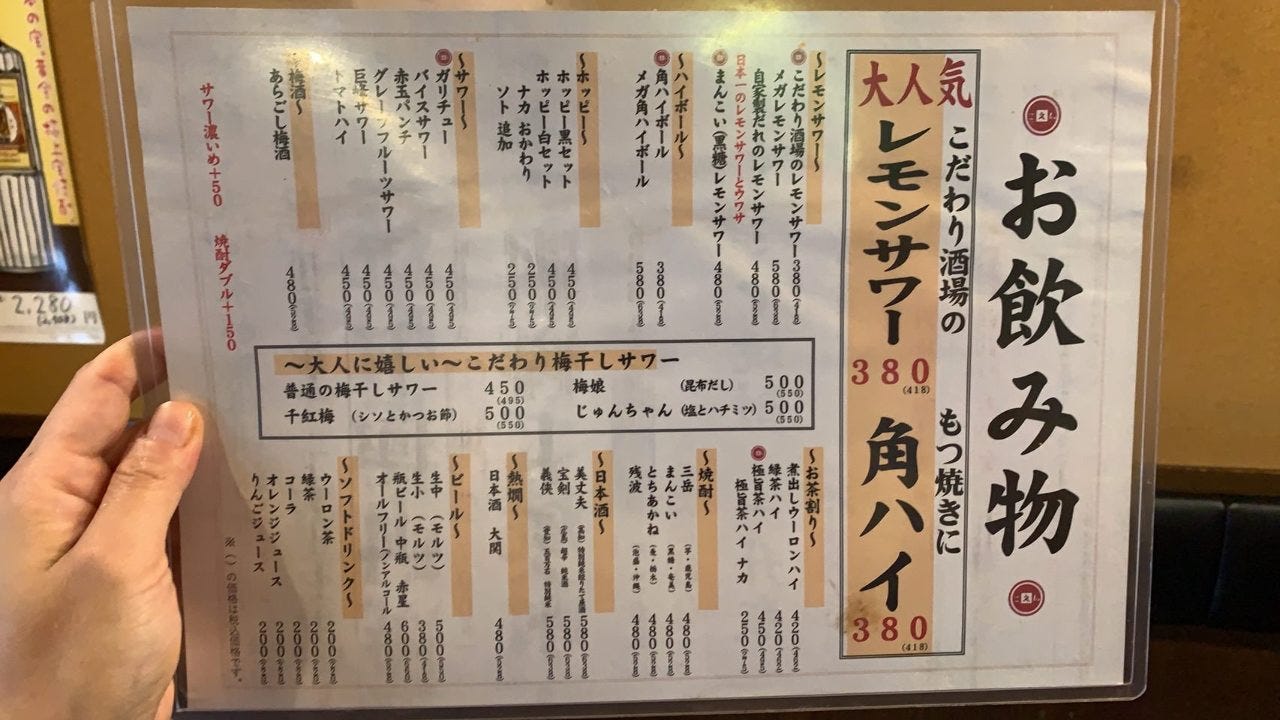 お飲み物
大人気
こだわり酒場の
レモンサワー
380
(418)
もつ焼きに
角ハイ
380
(418)
〜レモンサワー〜
こだわり酒場のレモンサワー 380
メガレモンサワー 580
自家製だれのレモンサワー 480
日本一のレモンサワーとウワサ
まんこい(黒糖)レモンサワー 480
〜ハイボール〜
角ハイボール 380
メガ角ハイボール 580
〜ホッピー〜
ホッピー黒セット 450
ホッピー白セット 450
ナカ おかわり 250
ソト 追加 250
〜サワー〜
ガリチュー 450
バイスサワー 450
赤玉パンチ 450
グレープフルーツサワー 450
巨峰サワー 450
トマトハイ 450
〜梅酒〜
あらごし梅酒 480
サワー濃いめ+50
焼酎ダブル+150
〜大人に嬉しい〜こだわり梅干しサワー
普通の梅干しサワー 450
(495)
梅娘 (昆布だし) 500
(550)
千紅梅 (シソとかつお節) 500
(550)
じゅんちゃん (塩とハチミツ) 500
(550)
〜お茶割り〜
煮出しウーロンハイ 420
緑茶ハイ 420
極旨茶ハイ 450
極旨茶ハイ ナカ 250
〜焼酎〜
三岳 (芋・鹿児島) 480
まんこい (黒糖・奄美) 480
とちあかね (麦・栃木) 480
残波 (泡盛・沖縄) 480
〜日本酒〜
美丈夫 580
宝剣 580
義侠 580
〜熱燗〜
日本酒 大関 480
〜ビール〜
生中 (モルツ) 500
生小 (モルツ) 380
瓶ビール 中瓶 赤星 600
オールフリー(ノンアルコール 480
〜ソフトドリンク〜
ウーロン茶 200
緑茶 200
コーラ 200
オレンジジュース 200
りんごジュース 200
※( )の価格は税込価格です。
2,280